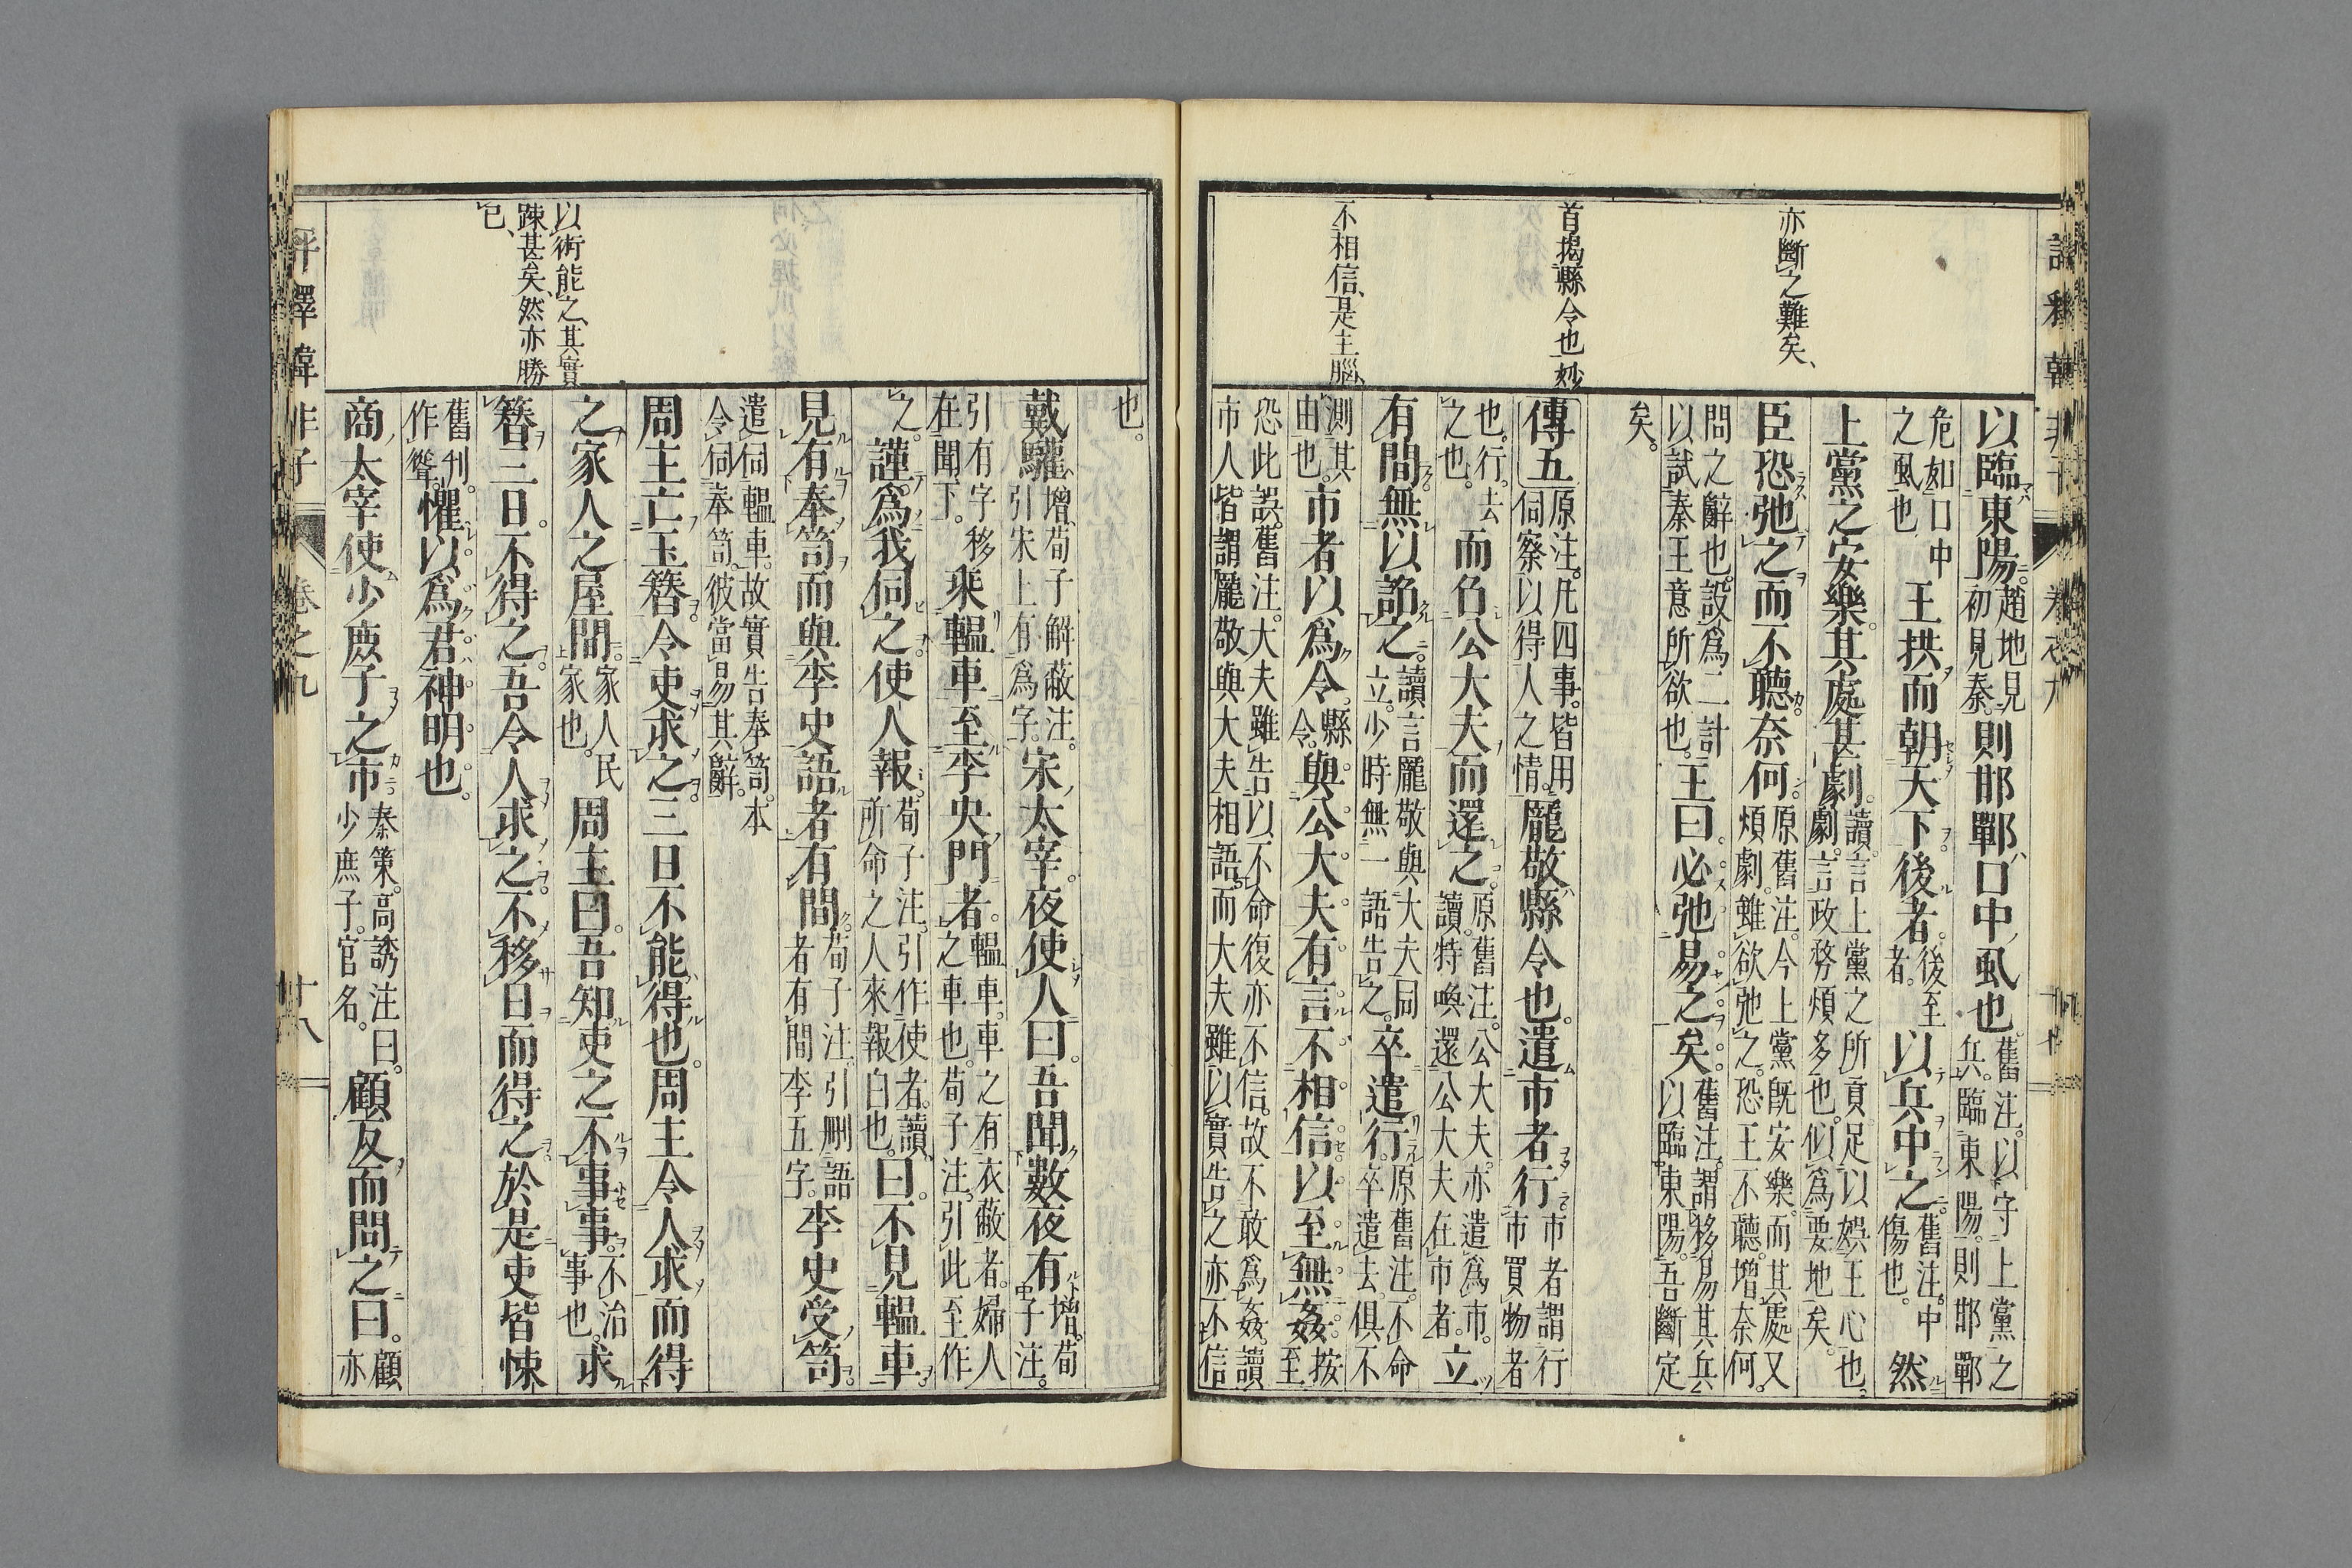 亦斷之難矣、
首揭縣令也妙
不相信、是主腦、
以臨東陽。趙地見初見秦。則邯鄲口中虱也。舊注。以守上黨之兵。臨東陽。則邯鄲
危如口中之虱也 王拱而朝天下後者。後至者。以兵中之。舊注。中傷也。然
上黨之安樂。其處甚劇。讀。言上黨之所貢足以娯王心也。劇。言政務煩多也。似為要地矣。
臣恐弛之而不聽奈何。原舊注。今上黨既安樂。而其處又煩劇。雖欲弛之。恐王不聽。增。奈何。
問之辭也。設為二計以試秦王意所欲也。王曰。必弛易之矣。舊注。謂移易其兵以臨東陽。吾斷定
矣。
傳五 原注。凡四事。皆用伺察以得人之情。龐敬縣令也。遣市者行。市者謂行市買物者
也。行。去之也。而召公大夫而還之。原舊注。公大夫。亦遣為市。讀。特喚還公大夫在市者。立
有間無以詔之。讀言龐敬與大夫同立。少時無一語告之。卒遣行。原舊注。不命卒遣去。俱不
測其由也。市者以為令。縣令。與公大夫有言不相信。以至無姦。按至
恐此誤。舊注。大夫雖告以不命復亦不信。故不敢為姦。讀市人皆謂龐敬與大夫相語。而大夫雖以實告之亦不信
也。
以術能之、其實
踈甚矣、然亦勝
已、
戴驩。增。荀子解蔽注。引朱上有為字。宋太宰。夜使人曰。吾聞數夜有增。荀子注。
引有字移在聞下。乘轀車至李央門者。轀車。車之有衣蔽者。婦人之車也。荀子注。引此至作
之。謹為我伺之。使人報。荀子注。引作使者。讀所命之人來報白也。曰。不見轀車。
見有奉笥而與李史語者。有間。荀子注。引刪語者有間李五字。李史受笥。
遣伺轀車。故實告奉笥。本令伺奉笥。彼當易其辭。
周主亡玉簪。令吏求之。三日不能得也。周主令人求而得
之家人之屋間。家人民家也。周主曰。吾知吏之不事事。不治事也。求
簪三日。不得之。吾令人求之。不移日而得之。於是吏皆悚
舊刊。作聳。懼。以為君神明也。
商太宰使少庶子之市。秦策。高誘注曰。少庶子。官名。顧反而問之曰。顧亦
卷之九
廿八